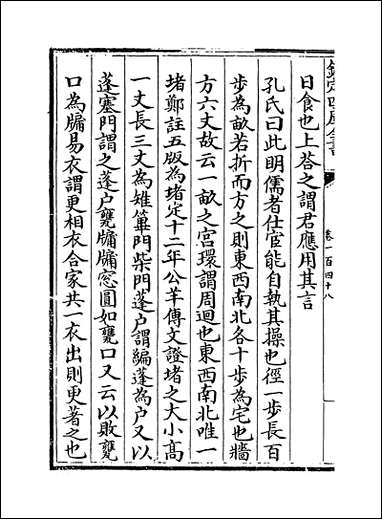 欽定四庫全書
卷一百四十八
日食也上荅之謂君應用其言
孔氏曰此明儒者仕宦能自執其操也徑一步長百
步為畝若折而方之則東西南北各十步為宅也牆
方六丈故云一畝之宮環謂周迴也東西南北唯一
堵鄭註五版為堵定十二年公羊傳文證堵之大小高
一丈長三丈為雉篳門柴門蓬户謂編蓬為户又以
蓬塞門謂之蓬户甕牖牖窓圓如甕口又云以敗甕
口為牖易衣謂更相衣合家共一衣出則更著之也